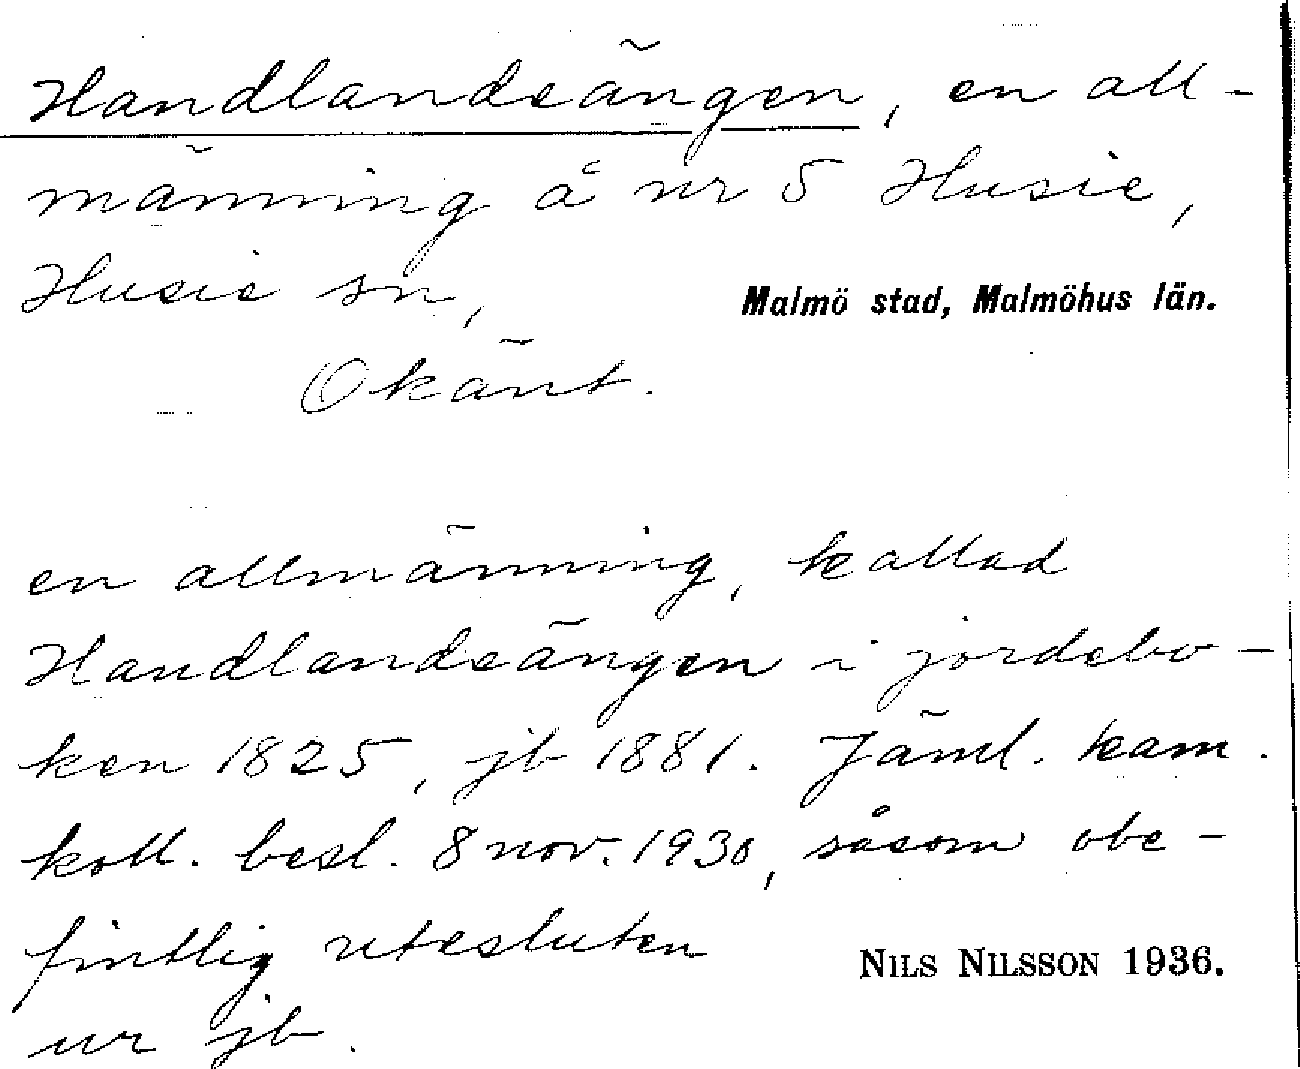 Handlandsängen, en all-
männing å nr 5 Husie,
Husie sn, Malmö stad, Malmöhus län.
Okänt.
en allmänning, kallad
Handlandsängen i jordebo-
ken 1825, jb 1881. Jäml. kam.
koll. besl. 8 nov. 1930, såsom obe-
fintlig utesluten
NILS NILSSON 1936.
ur jb.